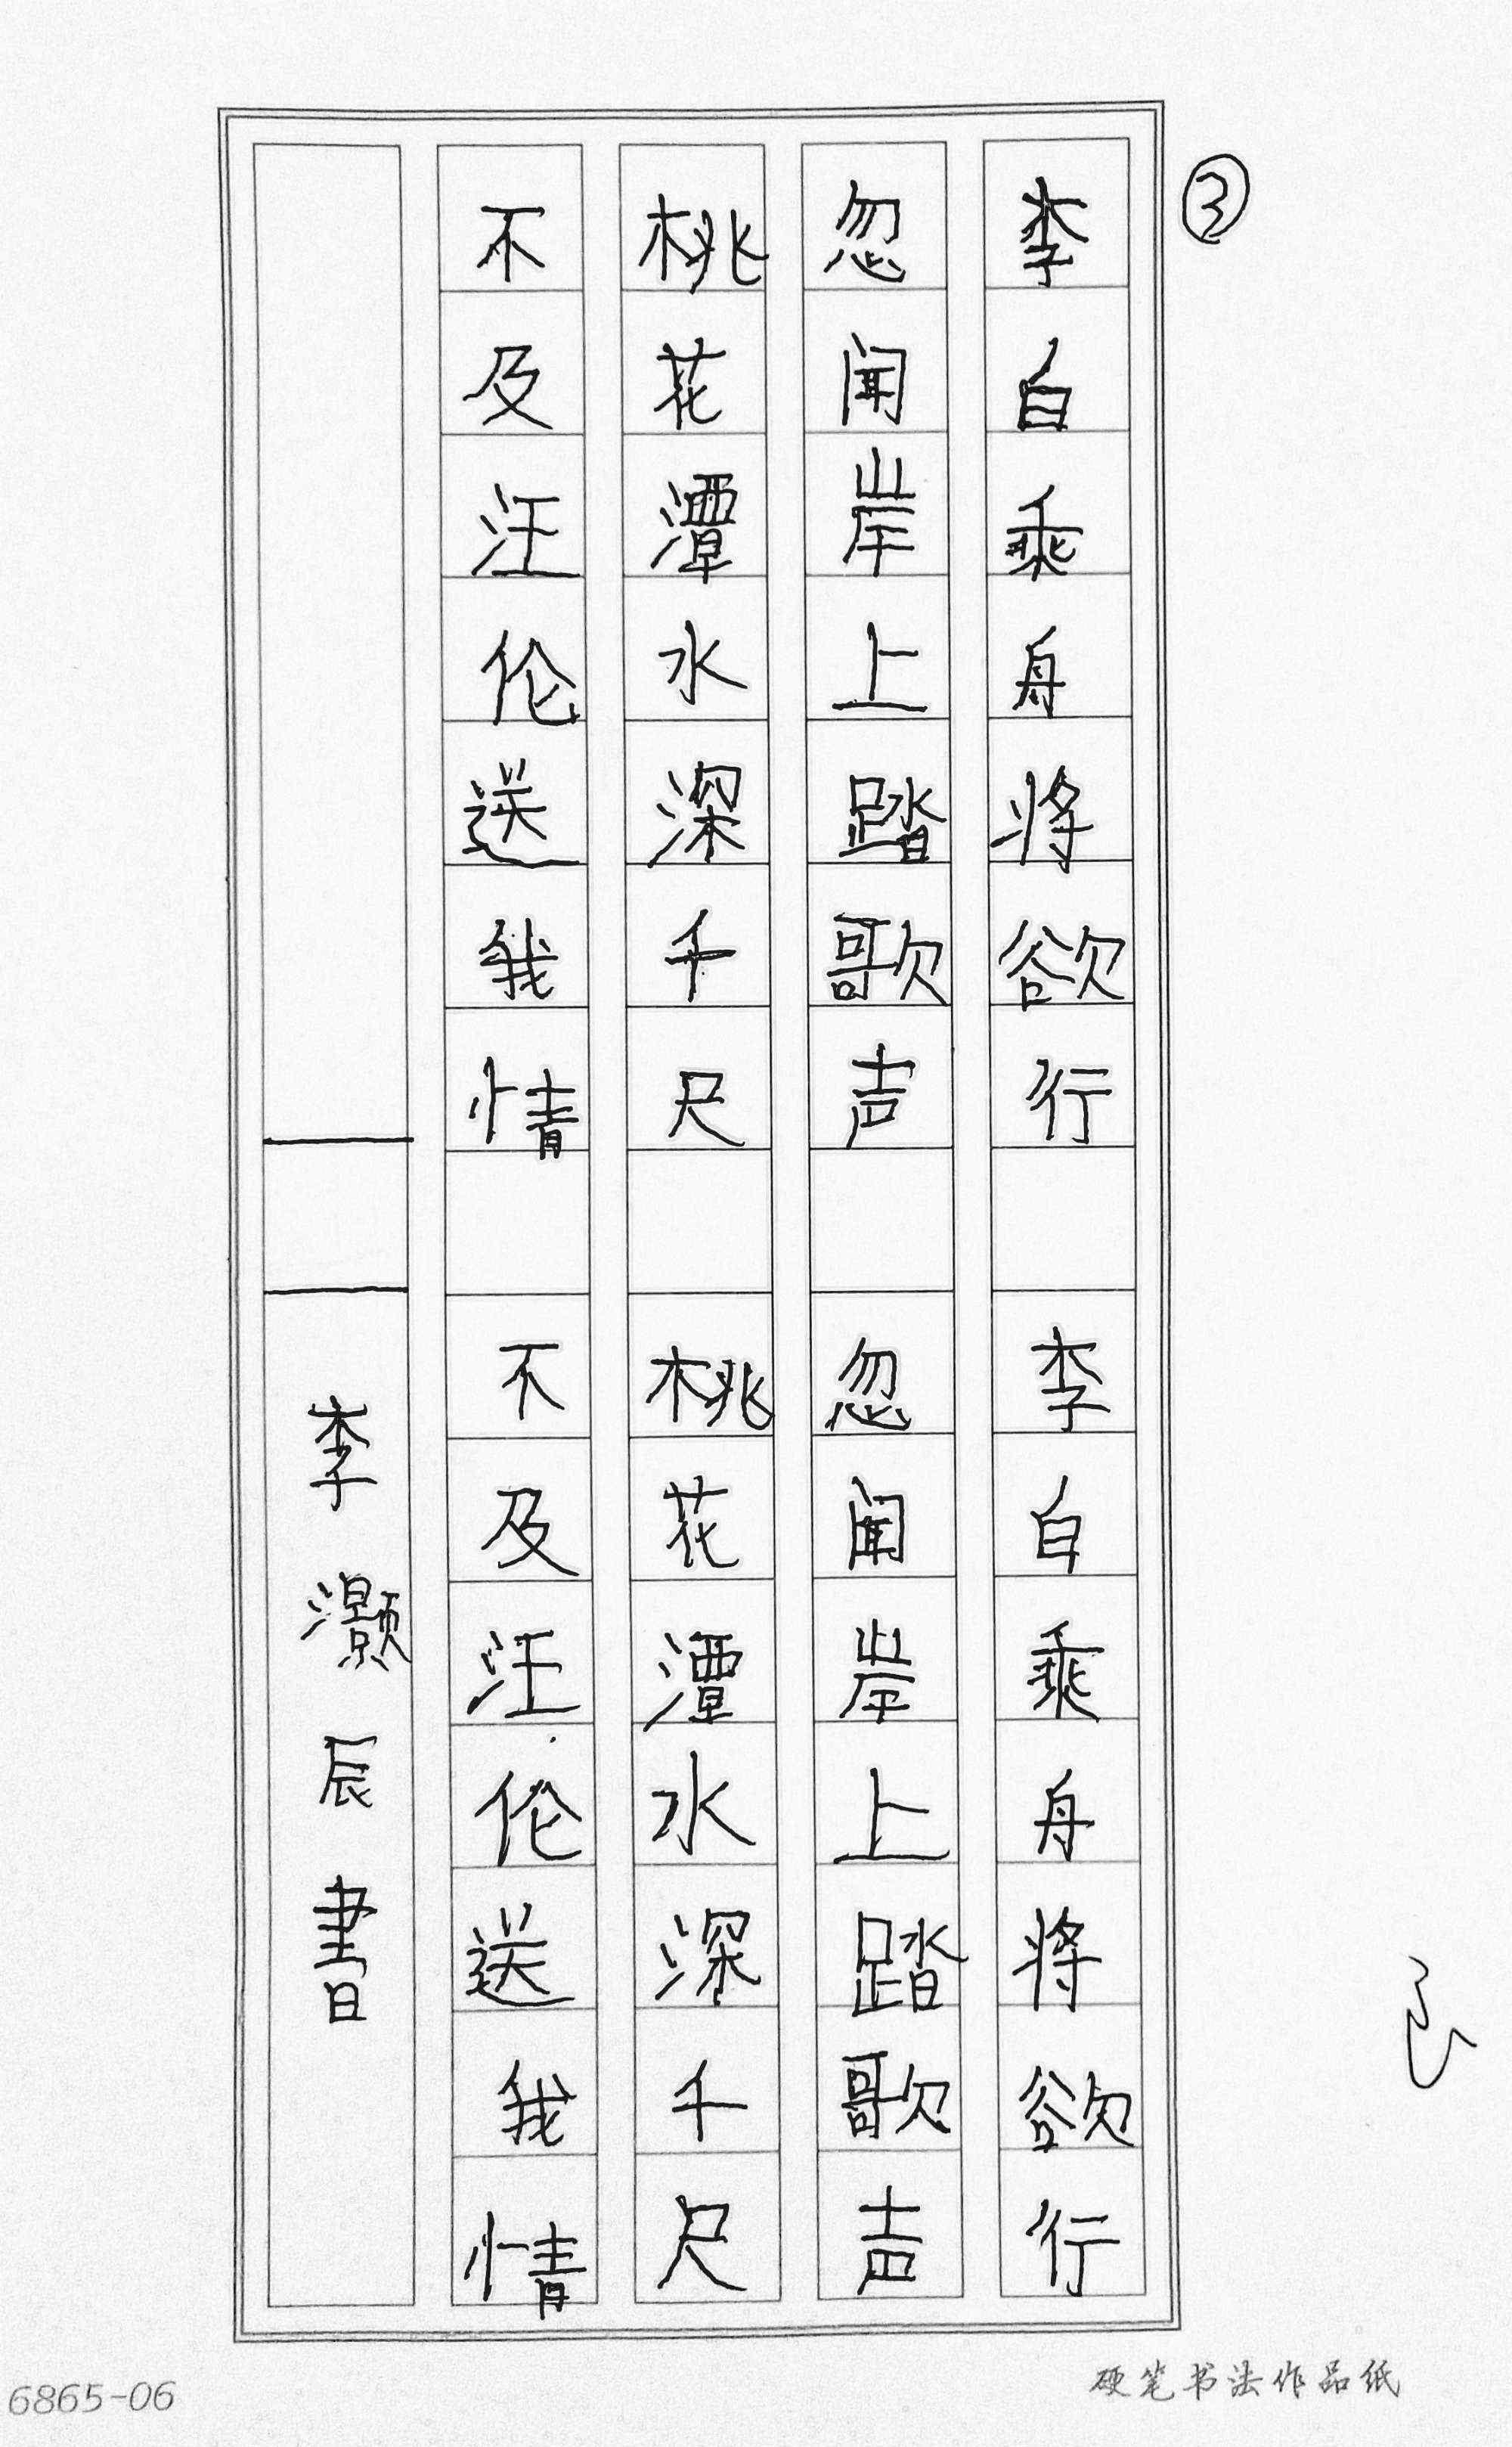 ③
李白乘舟将欲行 李白乘舟将欲行
忽闻岸上踏歌声 忽闻岸上踏歌声
桃花潭水深千尺 桃花潭水深千尺
不及汪伦送我情 不及汪伦送我情
李灏辰書
6865-06
硬笔书法作品纸